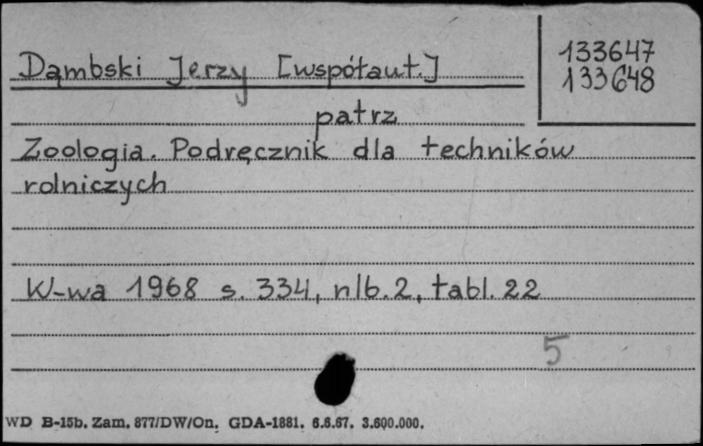 Dąmbski Jerzy [współaut.]
133647
133648
patrz
Zoologia. Podręcznik dla techników
rolniczych
W-wa 1968 s. 334, nlb. 2, tabl. 22
5
WD B-15b. Zam. 877/DW/On. GDA-1881. 6.6.67. 3.600.000.